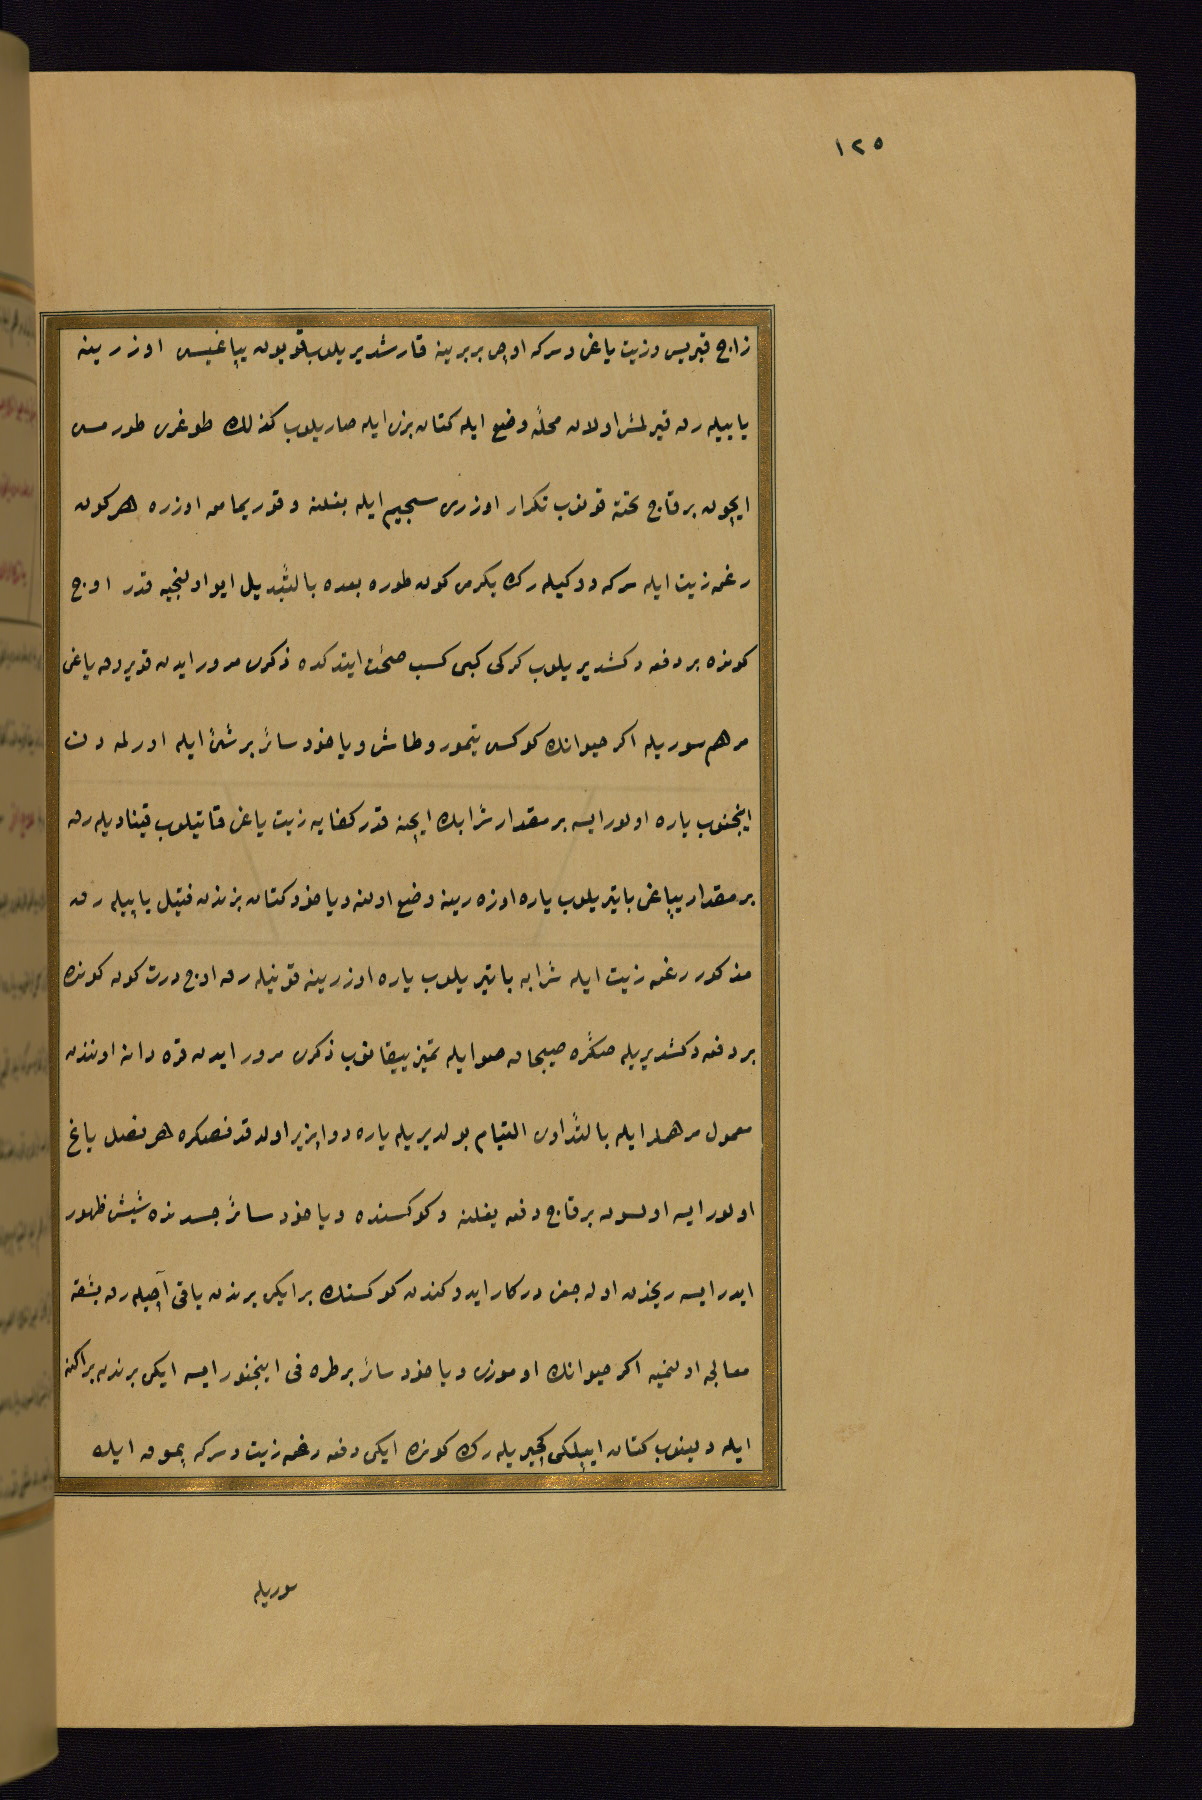 ١٢٥
زاج قبریس وزیت یاغی وسرکه اوچی بربرینه قارشدیریلوب قویون یپاغیسی اوزرینه
یاییله رق قیرلمش اولان محلّه وضع ایله کتان بزی ایله صاریلوب کذلك طوغری طورمسی
ایچون برقاچ تخته قونوب تکرار اوزری سجیم ایله بغلنه وقوریمامق اوزره هرکون
رغن زیت ایله سرکه دوکیله رك یکرمی کون طوره بعده بالتبدیل ایو اولنجیه قدر اوچ
کونده بر دفعه دکشدیریلوب کرکی کبی کسب صحّت ایتدکده ذکری مرور ایدن قویروق یاغی
مرهم سوریله اکر حیوانك کوکسی تیمور وطاش ویاخود سائر برشئ ایله اورلمه دن
اینجنوب یاره اولور ایسه بر مقدار شرابك ایچنه قدر کفایه زیت یاغی قاتیلوب قیناديله رق
بر مقدار یپاغی باتیریلوب یاره اوزه رینه وضع اولنه ویاخود کتان بزندن فتیل یاپیله رق
مذکور رغن زیت ایله شرابه باتیریلوب یاره اوزرینه قونیله رق اوچ درت کون کونده
بر دفعه دکشدیریله صکره صیجاق صو ایله تمیز ییقانوب ذکری مرور ایدن قره دانه اوتندن
معمول مرهملر ایله بالتداوی التیام بولدیریله یاره دواپزیر اولدقدنصکره هر نصل یانغ
اولور ایسه اولسون برقاچ دفعه یغلنه وکوکسنده ویاخود سائر جسدنده شیش ظهور
ایدر ایسه ریحدن اوله جغی درکار ایدوکندن کوکسنك بر ایکی یرندن یاقی آچیله رق بشقه
معالجه اولنمیه اکر حیوانك اوموزی ویاخود سائر برطرفی اینجنور ایسه ایکی یرندن براکنه
ایله دلینوب کتان ایپلکی کچیریله رك کونده ایکی دفعه رغن زیت وسرکه پموق ایله
سوریله